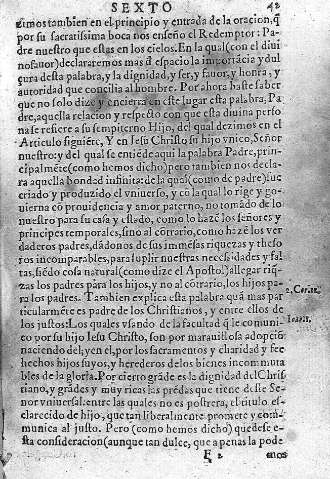 SEXTO 42
zimos tambien en el principio y entrada de la oracion, q̃
por su sacratissima boca nos enseño el Redemptor: Pa
dre nuestro que estas en los cielos. En la qual (con el diui
no fauor) declararemos mas d̃ espacio la importãcia y dul
çura desta palabra, y la dignidad, y ser, y fauor, y honra, y
autoridad que concilia al hombre. Por ahora baste saber
que no solo dize y encierra en este lugar esta palabra, Pa
dre, aquella relacion y respecto con que esta diuina perso
na se refiere a su sempiterno Hijo, del qual dezimos en el
Articulo siguiẽte, Y en Iesu Christo su hijo vnico, Señor
nuestro: y del qual se entiẽde aqui la palabra Padre, prin-
cipalmẽte (como hemos dicho) pero tambien nos decla
ra aquella bondad infinita: de la qual (como de padre) fue
criado y produzido el vniuerso, y en la qual lo rige y go-
uierno cõ prouidencia y amor paterno, no tomãdo de lo
nuestro para su casa y estado, como lo hazẽ los señores y
principes temporales, sino al cõtrario, como hazẽ los ver
daderos padres, dãdonos de sus immẽsas riquezas y theso
ros incomparables, para suplir nuestras necessidades y fal
tas, siẽdo cosa natural (como dize el Apostol) allegar riq̃
zas los padres para los hijos, y no al cõtrario, los hijos pa-
ra los padres. Tambien explica esta palabra quã mas par
ticularmẽte es padre de los Christianos, y entre ellos de
los justos: Los quales vsando de la facultad q̃ le comuni
co por su hijo Iesu Christo, son por marauillosa adopciõ
naciendo del, y en el, por los sacramentos y charidad y fee
hechos hijos suyos, y herederos de los bienes incommuta
bles de la gloria. Por cierto grãde es la dignidad del Chris
tiano, y grãdes y muy ricas las prẽdas que tiene deste Se
ñor vniuersal entre las quales no es postrera, el titulo es-
clarecido de hijo, que tan liberalmente promete y com-
munica al justo. Pero (como hemos dicho) quedese e-
sta consideracion (aunque tan dulce, que a penas la pode
F 2 mos
2. Cor. 12.
Ioan. 1.